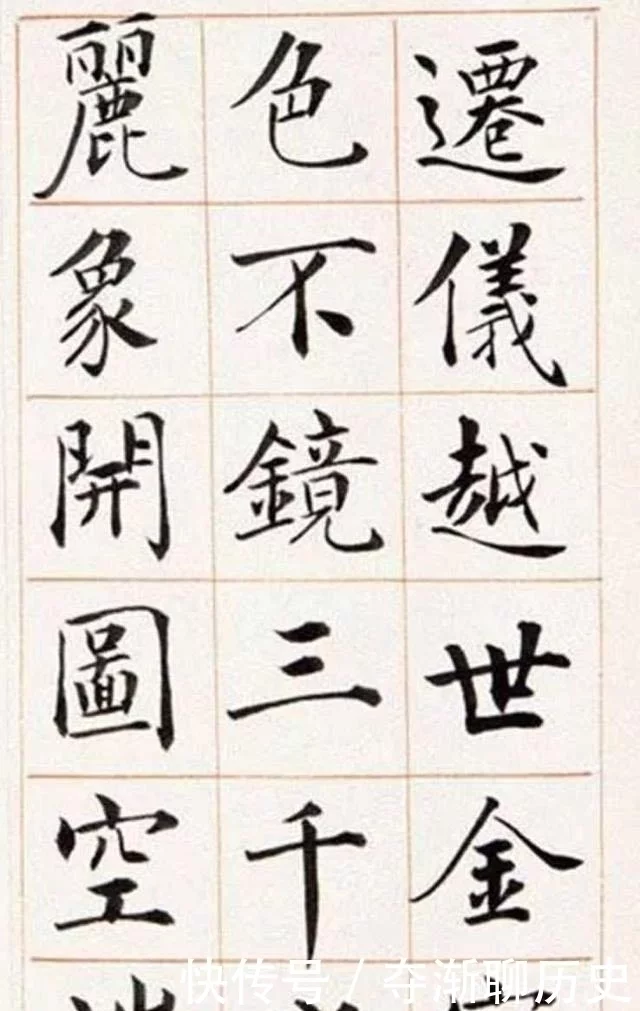 遷儀越世金
色不鏡三千
麗象開圖空
快传号/夺渐聊历史